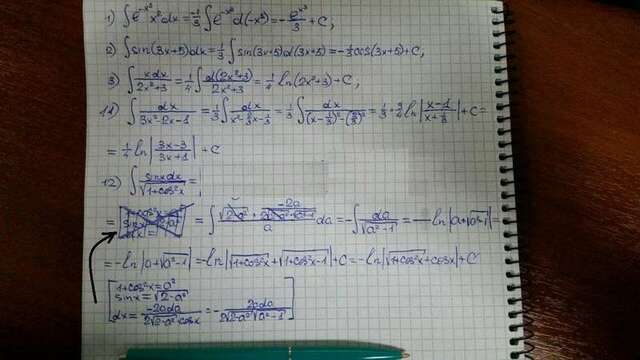 1) ∫e^(-x³)x²dx = -1/3 ∫e^(-x³)d(-x³) = -e^(-x³)/3 + C,
2) ∫sin(3x+5)dx = 1/3 ∫sin(3x+5)d(3x+5) = -1/3 cos(3x+5) + C,
3) ∫xdx/(2x²+3) = 1/4 ∫d(2x²+3)/(2x²+3) = 1/4 ln(2x²+3) + C,
11) ∫dx/(3x²-2x-1) = 1/3 ∫dx/(x²-2/3x-1/3) = 1/3 ∫dx/((x-1/3)²-(2/3)²) = 1/3 · 3/4 ln|(x-1)/(x+1/3)| + C =
= 1/4 ln|(3x-3)/(3x+1)| + C
12) ∫sinxdx/√(1+cos²x) =
= = ∫ da = -∫da/√(a²-1) = -ln|a+√(a²-1)| =
= -ln|a+√(a²-1)| = -ln|√(1+cos²x)+√(1+cos²x-1)| + C = -ln|√(1+cos²x)+cosx| + C
1+cos²x = a²
sinx = √(2-a²)
dx = -2ada/(2√(2-a²)·cosx) = -2ada/(2√(2-a²)√(a²-1))